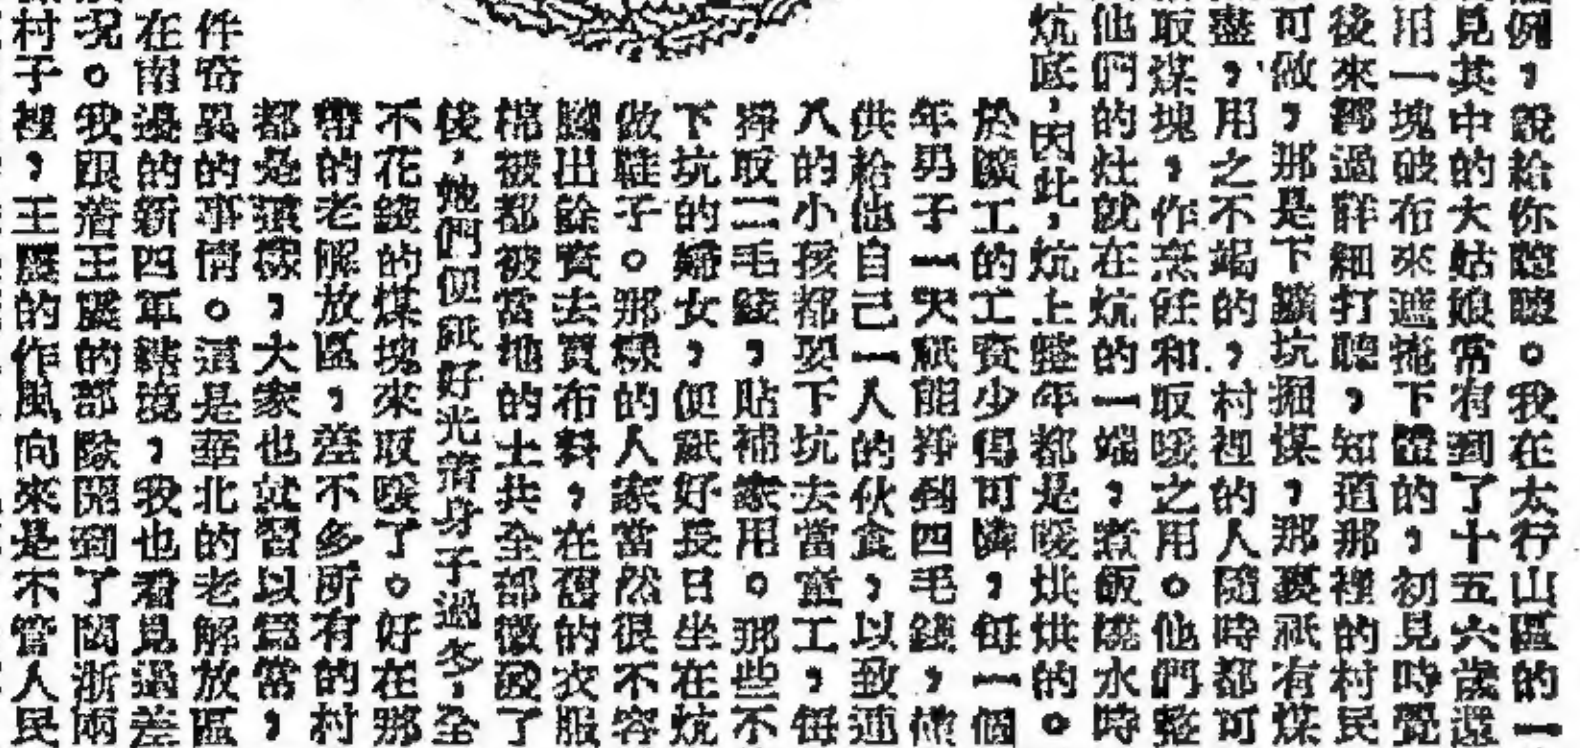 例，說給你聽聽。我在太行山區的一
見其中的大姑娘常有到了十五六歲還
用一塊破布來遮掩下體的，初見時覺
後來都過詳細打聽，知道那裡的村民
可做，那是下鑛坑掘煤，那裏祇有煤
盡，用之不竭的，村裡的人隨時都可
取煤塊，作烹飪和取暖之用。他們整
他們的灶就在炕的一端，煮飯燒水時
炕底，因此，炕上整年都是暖烘烘的。
於鑛工的工資少得可憐，每一個
年男子一天祇能掙到四毛錢，僅
供給他自己一人的伙食，以致連
八的小孩都要下坑去當童工，每
掙取二毛錢，貼補家用。那些不
下坑的婦女，便祇好長日坐在炕
做鞋子。那樣的人家當然很不容
騰出餘資去買布料，在舊的衣服
棉被都被當地的土共全部徵設了
後，她們便祇好光着身子過冬，全
不花錢的煤塊來取暖了。好在那
帶的老解放區，差不多所有的村
都是這樣，大家也就習以爲常，
件奇異的事情。這是華北的老解放區
在南邊的新四軍轄境，我也看見過差
況。我跟着王震的部隊開到了閩浙兩
村子裡，王震的作風向來是不管人民